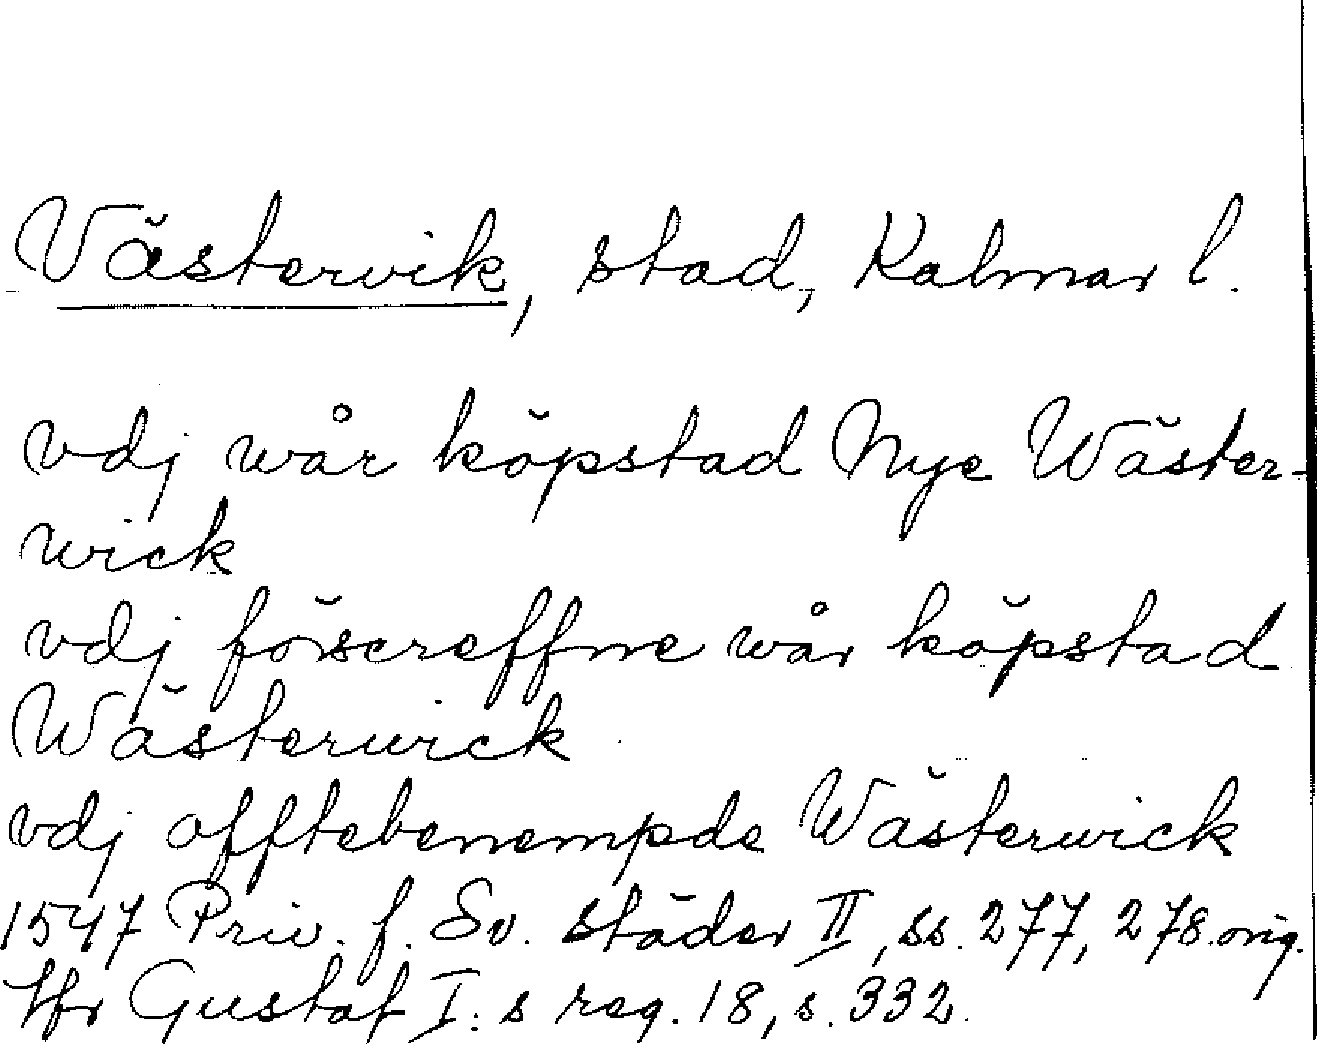 Västervik, stad, Kalmar l.
vdj wår köpstad Nye Wäster-
wick
vdj förscreffne wår köpstad
Wästerwick
vdj offtebenempde Wästerwick
1547 Priv. f. Sv. städer II, ss. 277, 278. orig.
Jfr Gustaf I:s reg. 18, s. 332.